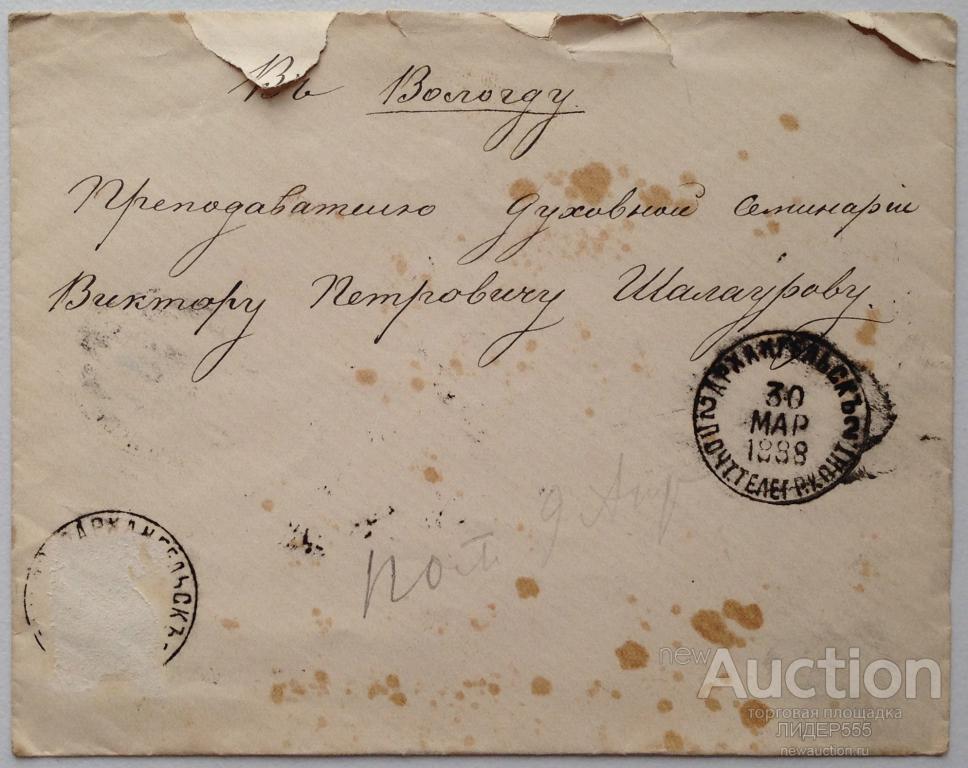 Въ Вологду.
Преподавателю Духовной Семинаріи
Виктору Петровичу Шалаурову.
АРХАНГЕЛЬСКЪ
30
МАР
1888
2 ПОЧТ.ТЕЛЕГР.КОНТ. 2
АРХАНГЕЛЬСКЪ
пол 9 Апр
newAuction
торговая площадка
ЛИДЕР555
newauction.ru